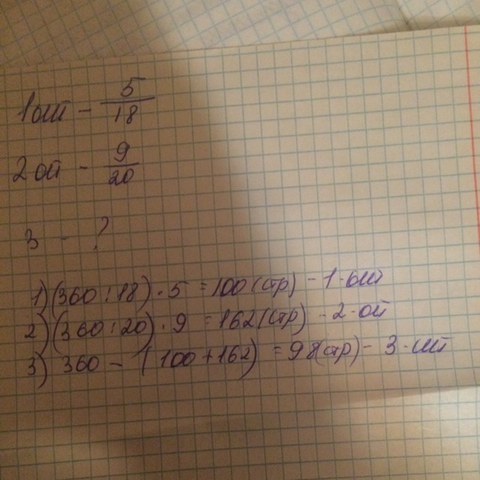 1ый - 5/18
2ой - 9/20
3 - ?
1) (360 : 18) · 5 = 100 (стр) - 1-ый
2) (360 : 20) · 9 = 162 (стр) - 2-ой
3) 360 - (100 + 162) = 98 (стр) - 3-ий